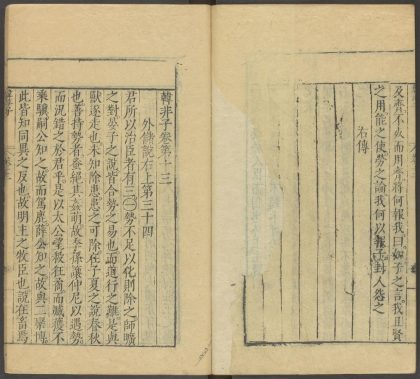 及齊不死而用齊將何報我曰如子之言我且賢
之用能之使勞之論我何以報子封人怨之
右傳
韓非子卷第十三
外儲說右上第三十四
君所以治臣者有三㊀勢不足以化則除之師曠
之對晏子之說皆合勢之易也而道行之難是與
獸逐走也未知除患患之可除在子夏之說春秋
也善持勢者蚤絕其姦萌故季孫讓仲尼以遇勢
而況錯之於君乎是以太公望殺狂矞而臧獲不
乘驥嗣公知之故而駕鹿薛公知之故與二欒博
此皆知同異之反也故明主之牧臣也說在畜焉